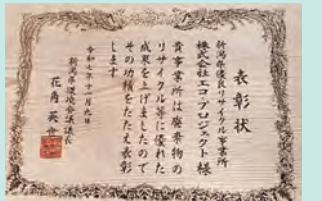 表彰状
新潟県優良リサイクル事業所
株式会社エコ・プロジェクト様
貴事業所は廃棄物の
リサイクル等に優れた
成果を上げましたので
その功績をたたえ表彰
します
令和七年十一月九日
新潟県環境会議議長
花角英世